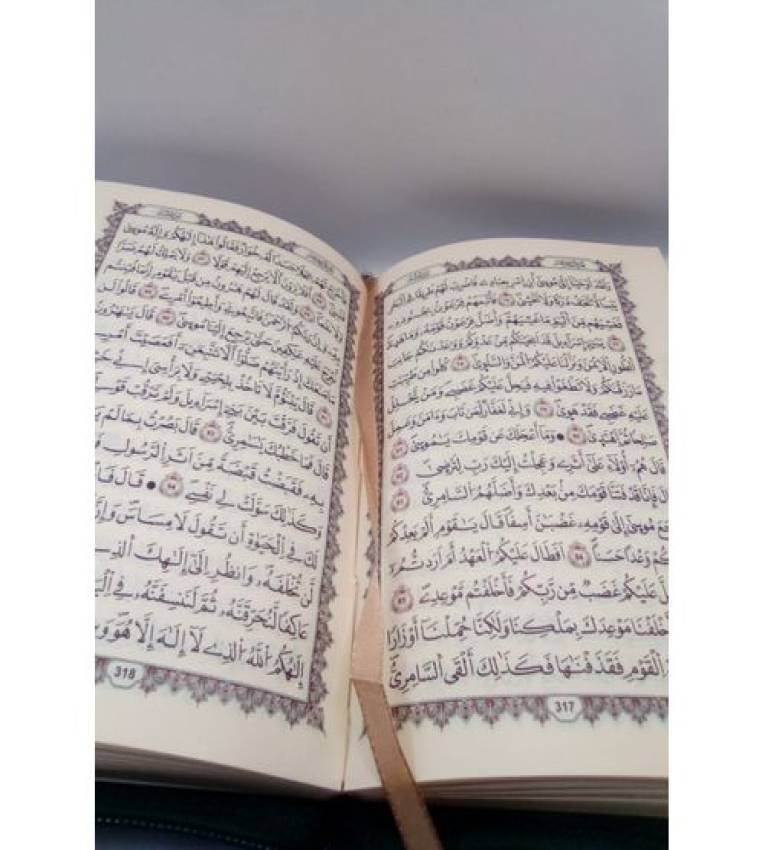 وَلَقَدَ اَوْحَيْنَآ إِلَىٰ مُوسَىٰٓ أَنِ اِسْرِ بِعِبَادِے فَاضْرِبْ لَهُمْ طَرِيقاٗ فِے اِلْبَحْرِ
يَبَساٗ لَّا تَخَٰفُ دَرَكاٗ وَلَا تَخْشَىٰ فَأَتْبَعَهُمْ فِرْعَوْنُ بِجُنُودِهِۦ
فَغَشِيَهُم مِّنَ اَلْيَمِّ مَا غَشِيَهُمْ وَأَضَلَّ فِرْعَوْنُ قَوْمَهُۥ وَمَا هَدَىٰ
يَٰبَنِےٓ إِسْرَآءِيلَ قَدَ اَنجَيْنَٰكُم مِّنْ عَدُوِّكُمْ وَوَٰعَدْنَٰكُمْ جَانِبَ
اَلطُّورِ اِلَايْمَنَ وَنَزَّلْنَا عَلَيْكُمُ اُلْمَنَّ وَالسَّلْوَىٰ كُلُواْ مِن طَيِّبَٰتِ
مَا رَزَقْنَٰكُمْ وَلَا تَطْغَوْاْ فِيهِ فَيَحِلَّ عَلَيْكُمْ غَضَبِے وَمَنْ يَّحْلِلْ
عَلَيْهِ غَضَبِے فَقَدْ هَوَىٰ وَإِنِّے لَغَفَّارٞ لِّمَن تَابَ وَءَامَنَ وَعَمِلَ
صَٰلِحاٗ ثُمَّ اَهْتَدَىٰ وَمَآ أَعْجَلَكَ عَن قَوْمِكَ يَٰمُوسَىٰ
قَالَ هُمُۥٓ أُوْلَآءِ عَلَىٰٓ أَثَرِے وَعَجِلْتُ إِلَيْكَ رَبِّ لِتَرْضَىٰ
قَالَ فَإِنَّا قَدْ فَتَنَّا قَوْمَكَ مِنۢ بَعْدِكَ وَأَضَلَّهُمُ اُلسَّامِرِيُّ
مُوسَىٰٓ إِلَىٰ قَوْمِهِۦ غَضْبَٰنَ أَسِفاٗ قَالَ يَٰقَوْمِ أَلَمْ يَعِدْكُمْ
وَعْداً حَسَناً اَفَطَالَ عَلَيْكُمُ اُلْعَهْدُ أَمَ اَرَدتُّمُۥٓ
عَلَيْكُمْ غَضَبٞ مِّن رَّبِّكُمْ فَأَخْلَفْتُم مَّوْعِدِے
أَخْلَفْنَا مَوْعِدَكَ بِمَلْكِنَا وَلَٰكِنَّا حُمِّلْنَآ أَوْزَاراٗ
اَلْقَوْمِ فَقَذَفْنَٰهَا فَكَذَٰلِكَ أَلْقَى اَلسَّامِرِيُّ
317
فَأَخْرَجَ لَهُمْ عِجْلاٗ جَسَداٗ لَّهُۥ خُوَارٞ فَقَالُواْ هَٰذَآ إِلَٰهُكُمْ وَإِلَٰهُ مُوسَىٰ
أَفَلَا يَرَوْنَ أَلَّا يَرْجِعُ إِلَيْهِمْ قَوْلاٗ وَلَا يَمْلِكُ لَهُمْ ضَرّاٗ
وَلَقَدْ قَالَ لَهُمْ هَٰرُونُ مِن قَبْلُ يَٰقَوْمِ إِنَّمَا فُتِنتُم
رَبَّكُمُ اُلرَّحْمَٰنُ فَاتَّبِعُونِے وَأَطِيعُوٓاْ أَمْرِے قَالُواْ لَن
نَّبْرَحَ عَلَيْهِ عَٰكِفِينَ حَتَّىٰ يَرْجِعَ إِلَيْنَا مُوسَىٰ قَالَ يَٰهَٰرُونُ
مَا مَنَعَكَ إِذْ رَأَيْتَهُمْ ضَلُّوٓاْ أَلَّا تَتَّبِعَنِۦٓ أَفَعَصَيْتَ أَمْرِے
قَالَ يَبْنَؤُمَّ لَا تَاخُذْ بِلِحْيَتِے وَلَا بِرَأْسِيَ إِنِّے
أَن تَقُولَ فَرَّقْتَ بَيْنَ بَنِےٓ إِسْرَآءِيلَ وَلَمْ تَرْقُبْ قَوْلِے
قَالَ فَمَا خَطْبُكَ يَٰسَٰمِرِيُّ قَالَ بَصُرْتُ بِمَا لَمْ
بِهِۦ فَقَبَضْتُ قَبْضَةٗ مِّنَ اَثَرِ اِلرَّسُولِ
وَكَذَٰلِكَ سَوَّلَتْ لِے نَفْسِے قَالَ
لَكَ فِے اِلْحَيَوٰةِ أَن تَقُولَ لَا مِسَاسَ وَإِنَّ
لَّن تُخْلَفَهُۥ وَانظُرِ اِلَىٰٓ إِلَٰهِكَ اَلذِے
عَاكِفاٗ لَّنُحَرِّقَنَّهُۥ ثُمَّ لَنَنسِفَنَّهُۥ فِے اِلْيَمِّ
إِلَٰهُكُمُ اُللَّهُ اُلذِے لَآ إِلَٰهَ إِلَّا هُوَ
318